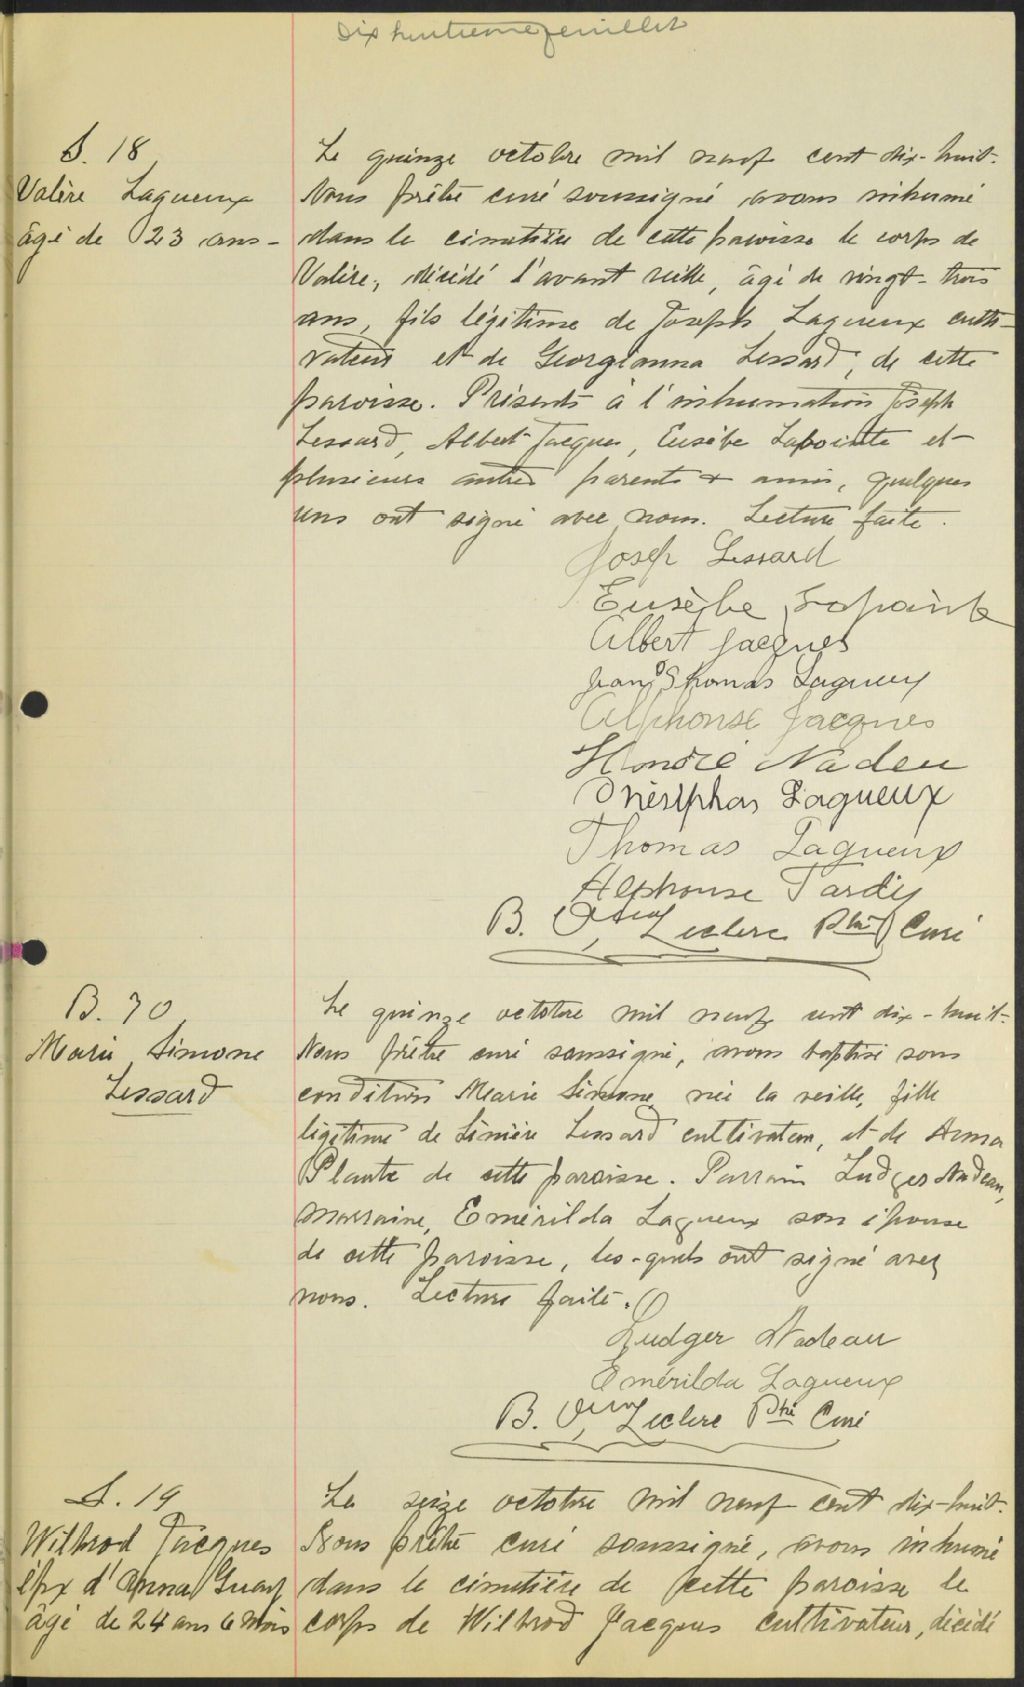 Dix huitième feuillet
S. 18
Valère Lagueux
âgé de 23 ans -
Le quinze octobre mil neuf cent dix-huit.
Nous prêtre curé soussigné avons inhumé
dans le cimetière de cette paroisse le corps de
Valère, décédé l'avant veille, âgé de vingt-trois
ans, fils légitime de Joseph Lagueux culti-
vateur et de Georgianna Lessard, de cette
paroisse. Présents à l'inhumation Joseph
Lessard, Albert Jacques, Eusèbe Lapointe et
plusieurs autres parents & amis, quelques
uns ont signé avec nous. Lecture faite.
Josep Lessard
Eusèbe Lapointe
Albert Jacques
Jean Thomas Lagueux
Alphonse Jacques
Honoré Nadeu
Onésiphas Lagueux
Thomas Lagueux
Alphonse Tardif
B. Leclerc Ptre Curé
B. 70
Marie Simone
Lessard
Le quinze octobre mil neuf cent dix-huit.
Nous prêtre curé soussigné, avons baptisé sous
condition Marie Simone née la veille, fille
légitime de Linière Lessard cultivateur, et de Anna
Plante de cette paroisse. Parrain Ludger Nadeau,
marraine, Emérilda Lagueux son épouse
de cette paroisse, les-quels ont signé avec
nous. Lecture faite.
Ludger Nadeau
Emérilda Lagueux
B. Leclerc Ptre Curé
S. 19
Wilbrod Jacques
épx d'Anna
âgé de 24 ans 6 mois
Le seize octobre mil neuf cent dix-huit.
Nous prêtre curé soussigné, avons inhumé
dans le cimetière de cette paroisse le
corps de Wilbrod Jacques cultivateur, décédé